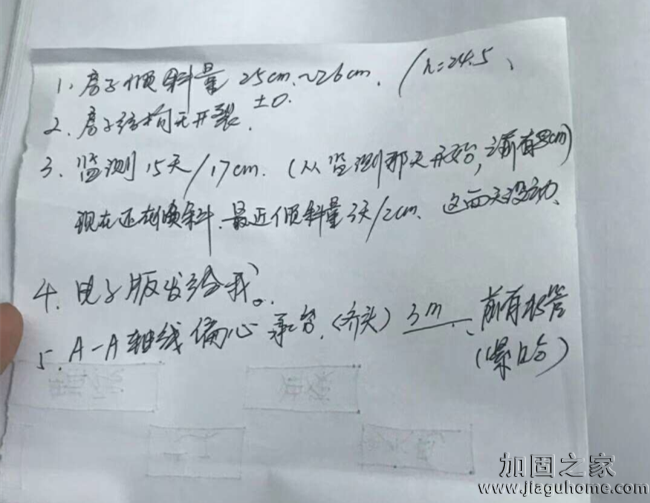 1、房子倾斜量 25cm~26cm. /h=24.5、
2、房子结构无开裂. ±0.
3、监测15天/17cm. (从监测那天开始, 之前有8cm)
现在还在倾斜. 最近倾斜量3天/2cm. 这两天没动.
4、电子版发给我。
5、A-A轴线偏心承台. (齐头) 3m、前有水管
(爆口)
加固之家
www.jiaguhome.com